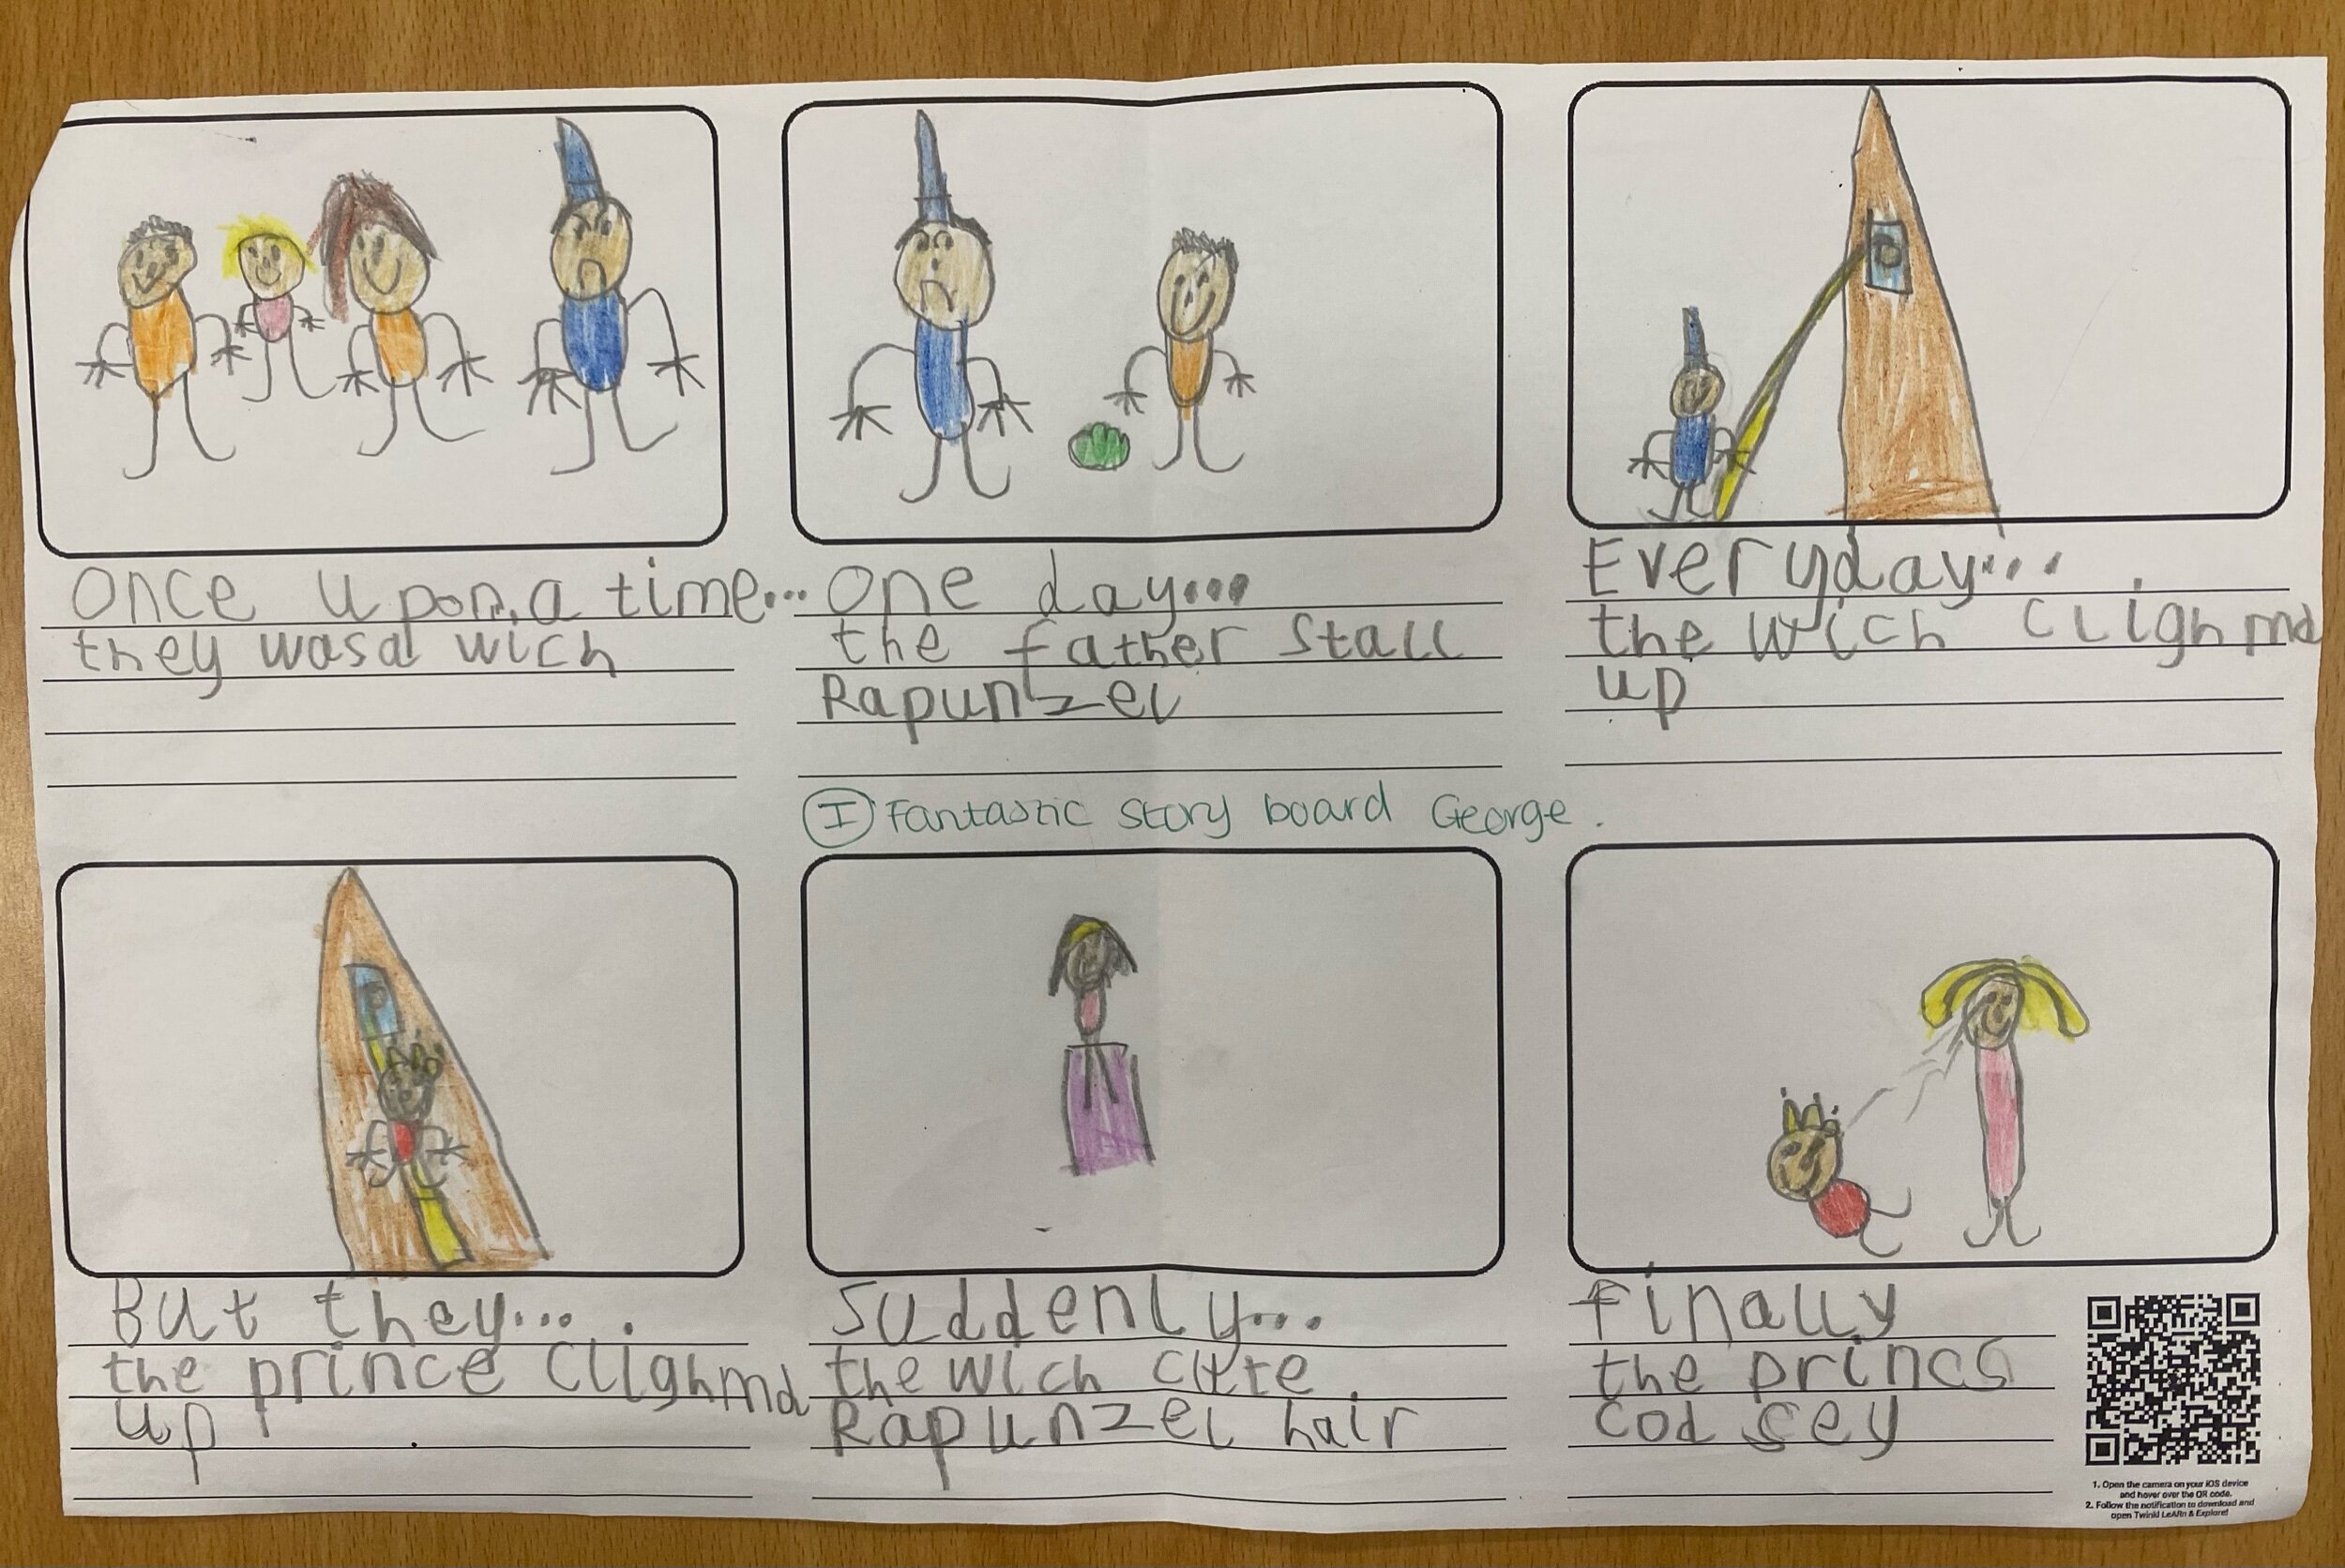 Once upon a time...
they wasa wich
One day...
the father stall
Rapunzel
Everyday...
the wich clighmd
up
I Fantastic story board George.
But they...
the prince clighmd
up
Suddenly...
the wich
Rapunzel hair
finally
the princs
cod sey
1. Open the camera on your iOS device
and hover over the QR code.
2. Follow the notification to download and
open Twinkl LeARn & Explore!